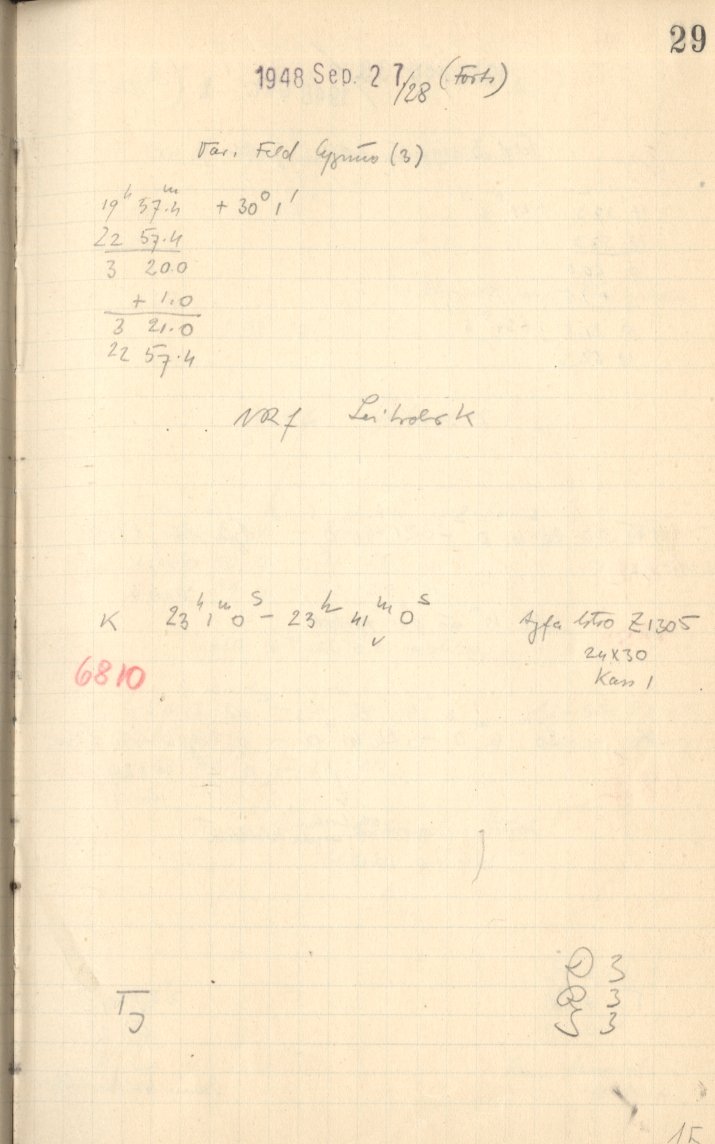 29
1948 Sep. 27/28 (Forts)
Var. Feld Cygnus (3)
19h 37.4m + 30° 1'
22 57.4
3 20.0
+ 1.0
3 21.0
22 57.4
NRf
K 23h 1m 0s - 23h 41m 0s Agfa Astro Z1305
24X30
6810 Kass 1
D 3
R 3
S 3
15